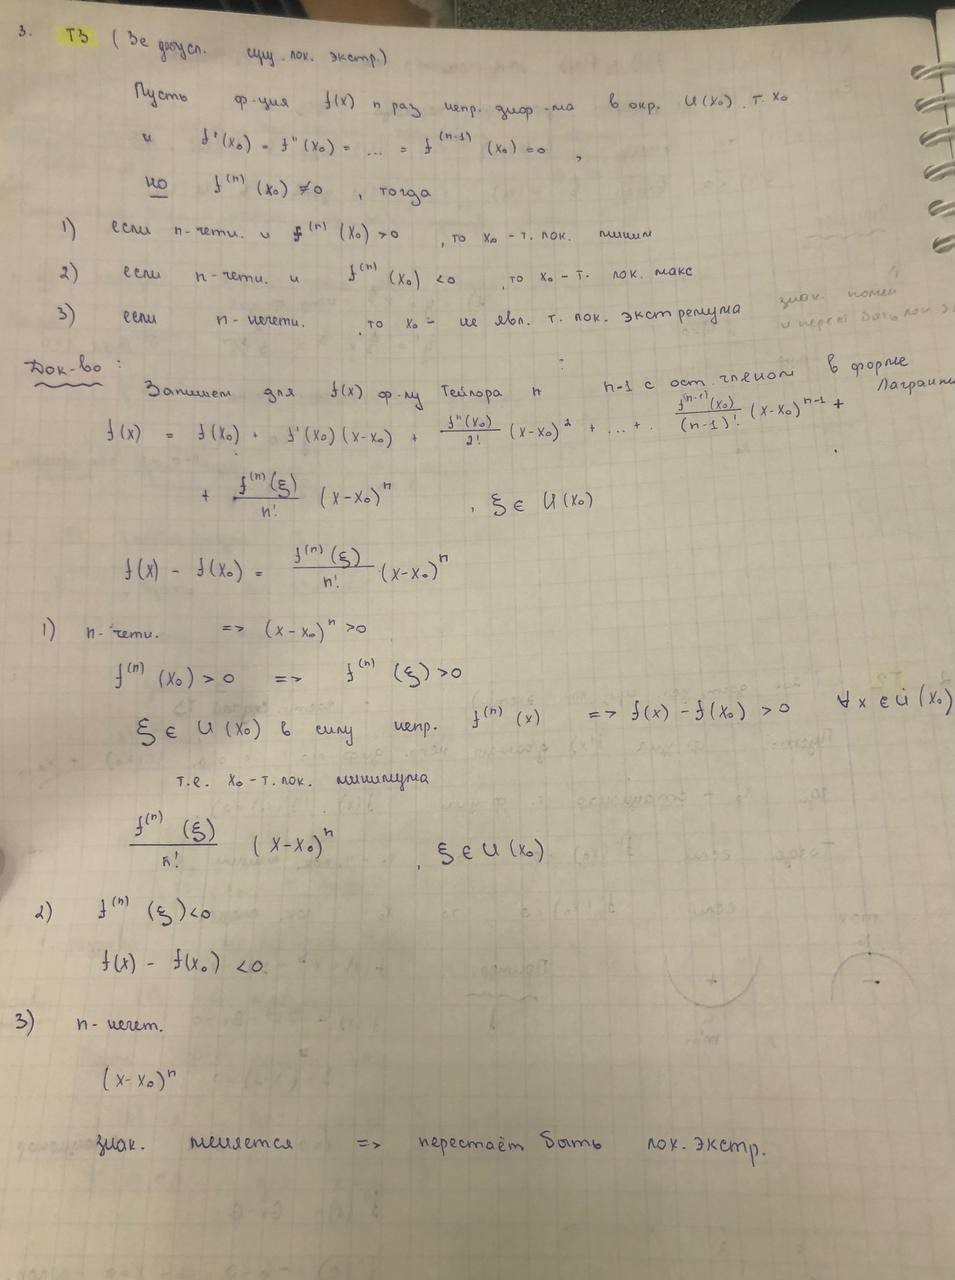 3. T3 (3е допусл. сущ. лок. экстр.)
Пусть ф-ция f(x) n раз непр. диф-ма в окр. U(x₀) т. x₀
и f'(x₀) = f''(x₀) = ... = f⁽ⁿ⁻¹⁾(x₀) = 0 ,
но f⁽ⁿ⁾(x₀) ≠ 0 , тогда
1) если n-четн. и f⁽ⁿ⁾(x₀) > 0 , то x₀ - т. лок. миним
2) если n-четн. и f⁽ⁿ⁾(x₀) < 0 , то x₀ - т. лок. макс
3) если n-нечетн. , то x₀ - не явл. т. лок. экстремума
знак. помен
и перест быть лок э
Док-во :
Запишем для f(x) ф-лу Тейлора п n-1 с ост. членом в форме Лагранж
f(x) = f(x₀) + f'(x₀)(x-x₀) + f''(x₀)/2! (x-x₀)² + ... + f⁽ⁿ⁻¹⁾(x₀)/(n-1)! (x-x₀)ⁿ⁻¹ +
+ f⁽ⁿ⁾(ξ)/n! (x-x₀)ⁿ , ξ ∈ U(x₀)
f(x) - f(x₀) = f⁽ⁿ⁾(ξ)/n! · (x-x₀)ⁿ
1) n-четн. => (x-x₀)ⁿ > 0
f⁽ⁿ⁾(x₀) > 0 => f⁽ⁿ⁾(ξ) > 0
ξ ∈ U(x₀) в силу непр. f⁽ⁿ⁾(x) => f(x) - f(x₀) > 0 ∀ x ∈ U̇(x₀)
т.е. x₀ - т. лок. минимума
f⁽ⁿ⁾(ξ)/n! (x-x₀)ⁿ , ξ ∈ U(x₀)
2) f⁽ⁿ⁾(ξ) < 0
f(x) - f(x₀) < 0
3) n-нечет.
(x-x₀)ⁿ
знак. меняется => перестаёт быть лок. экстр.